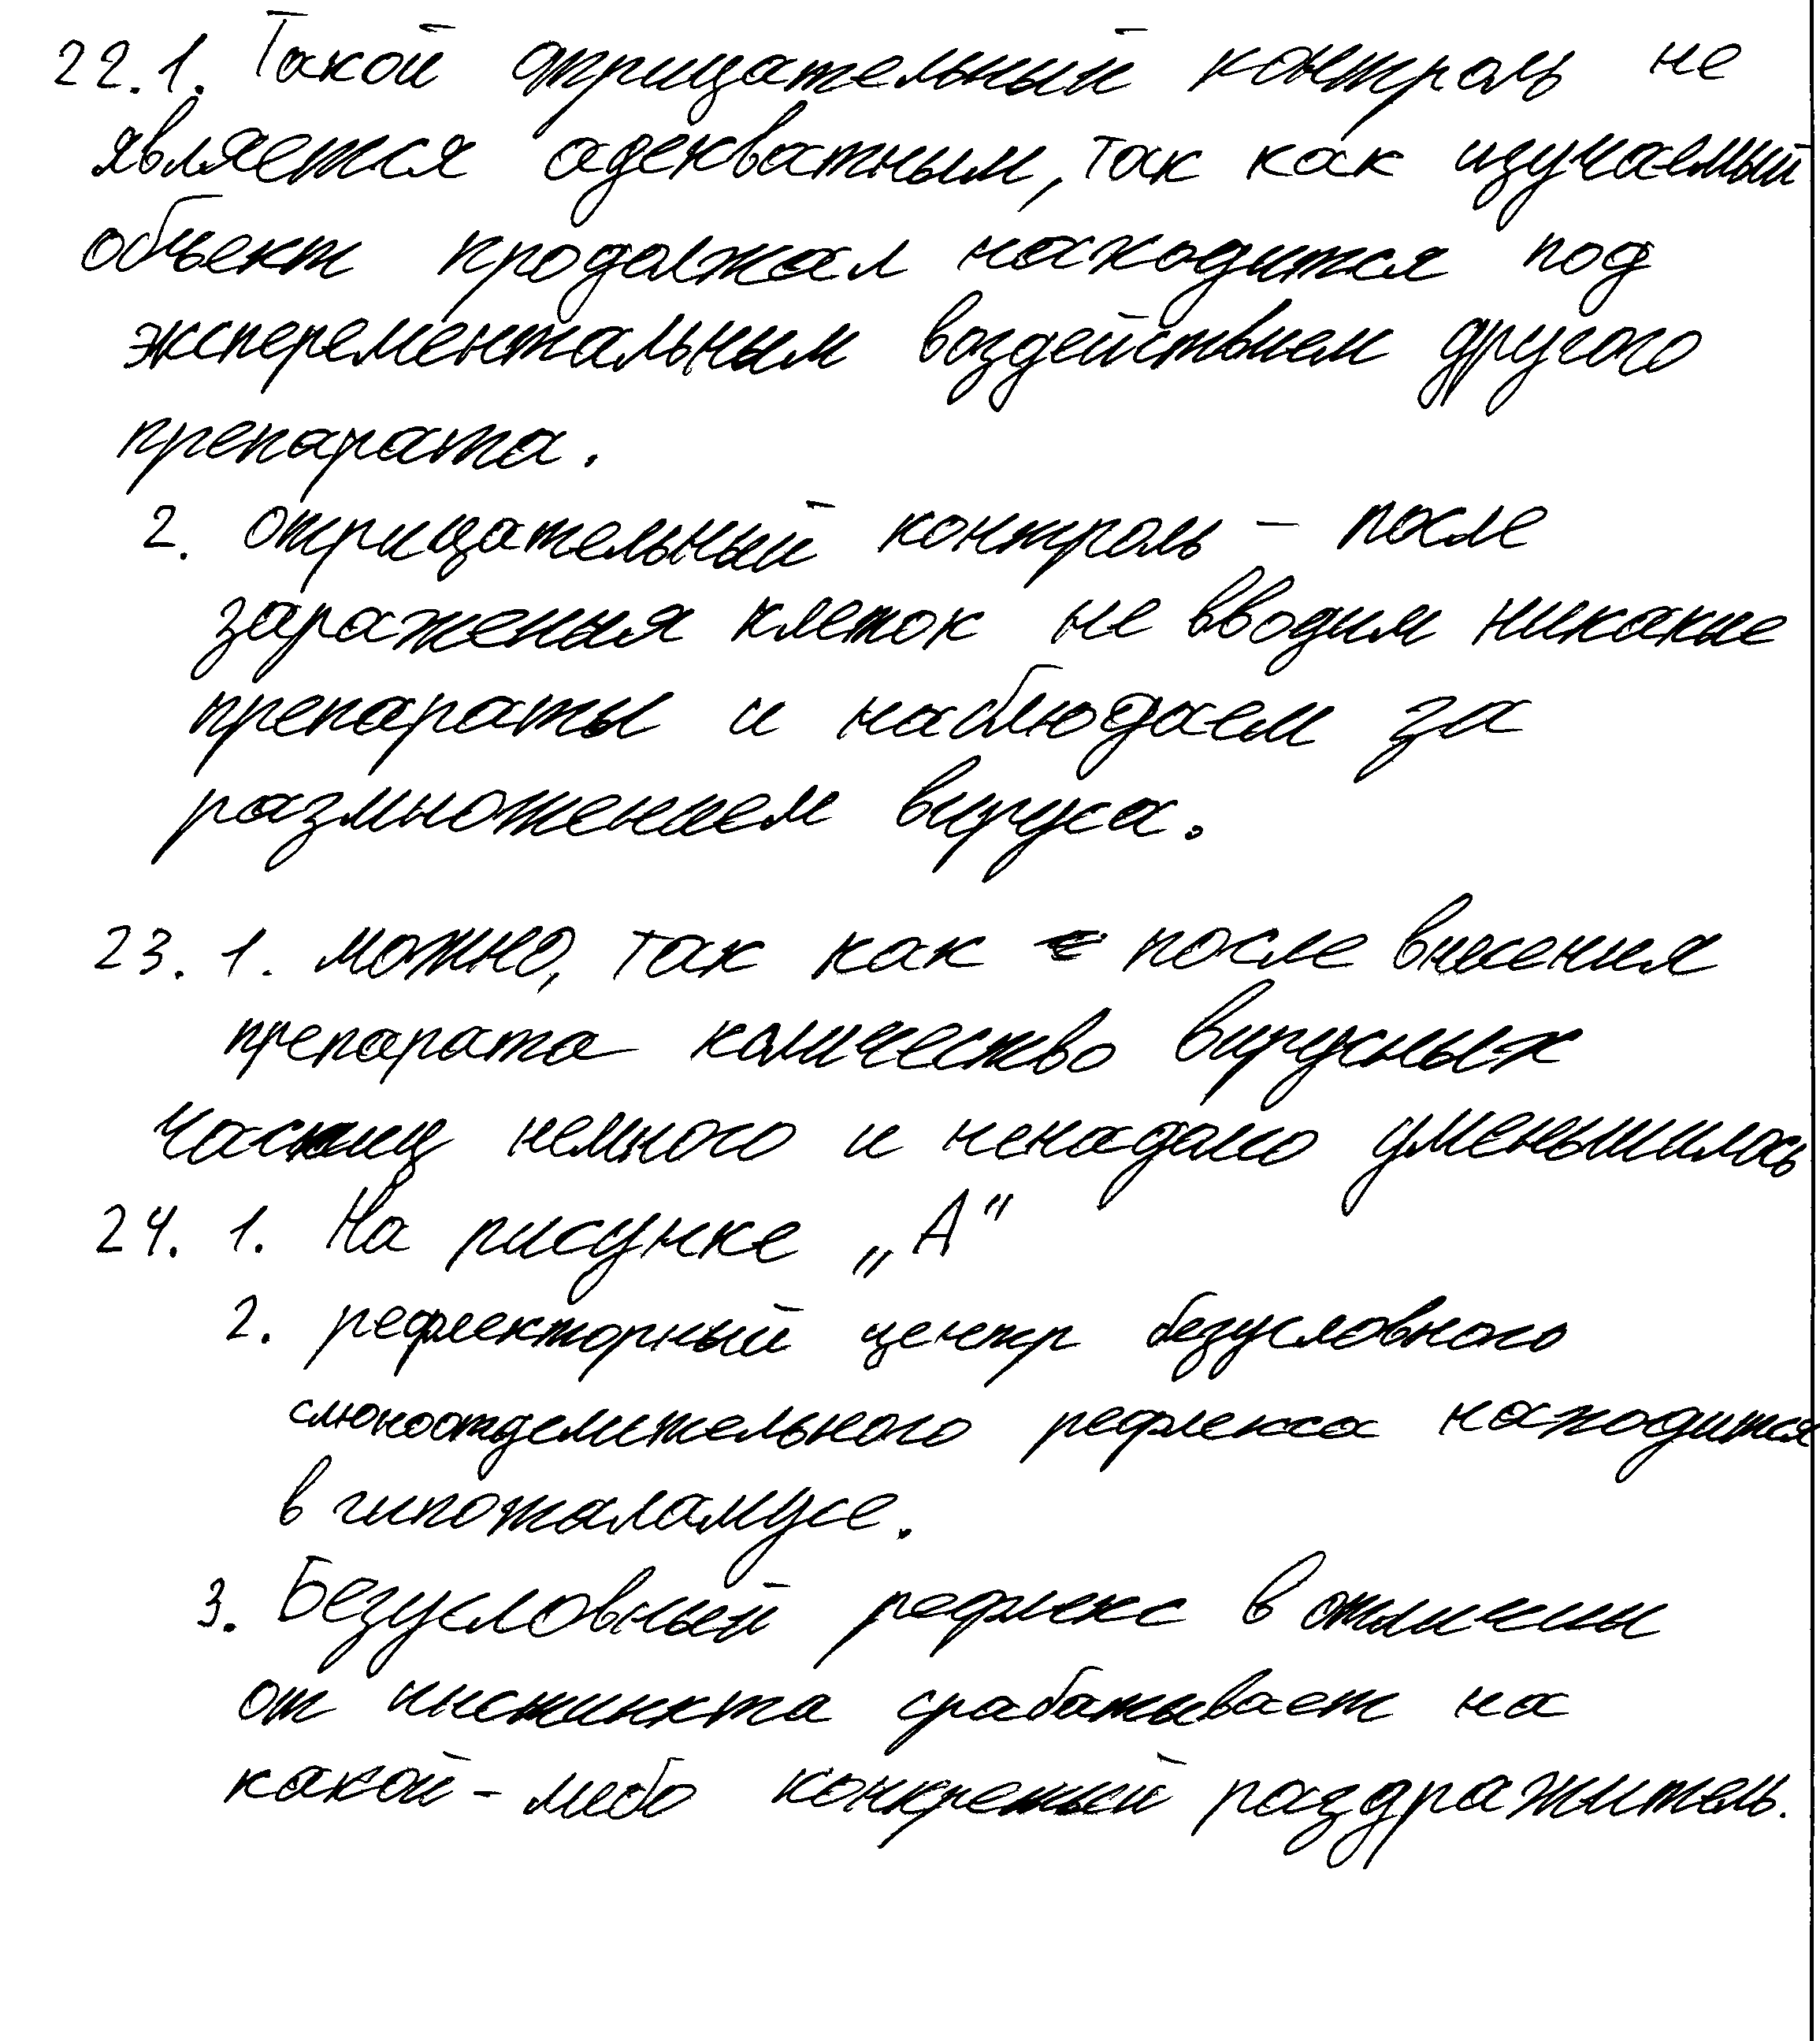 22.1. Такой отрицательный контроль не
является адекватным, так как изучаемый
объект продолжал находится под
эксперементальным воздействием другого
препарата.
2. отрицательный контроль – после
заражения клеток не вводим никакие
препараты и наблюдаем за
размножением вируса.
23. 1. можно, так как после внесения
препарата количество вирусных
частиц немного и ненадолго уменьшилось
24. 1. На рисунке „А"
2. рефлекторный центр безусловного
слюноотделительного рефлекса находится
в гипоталамусе.
3. Безусловный рефлекс в отличии
от инстинкта срабатывает на
какой-либо конкретный раздражитель.